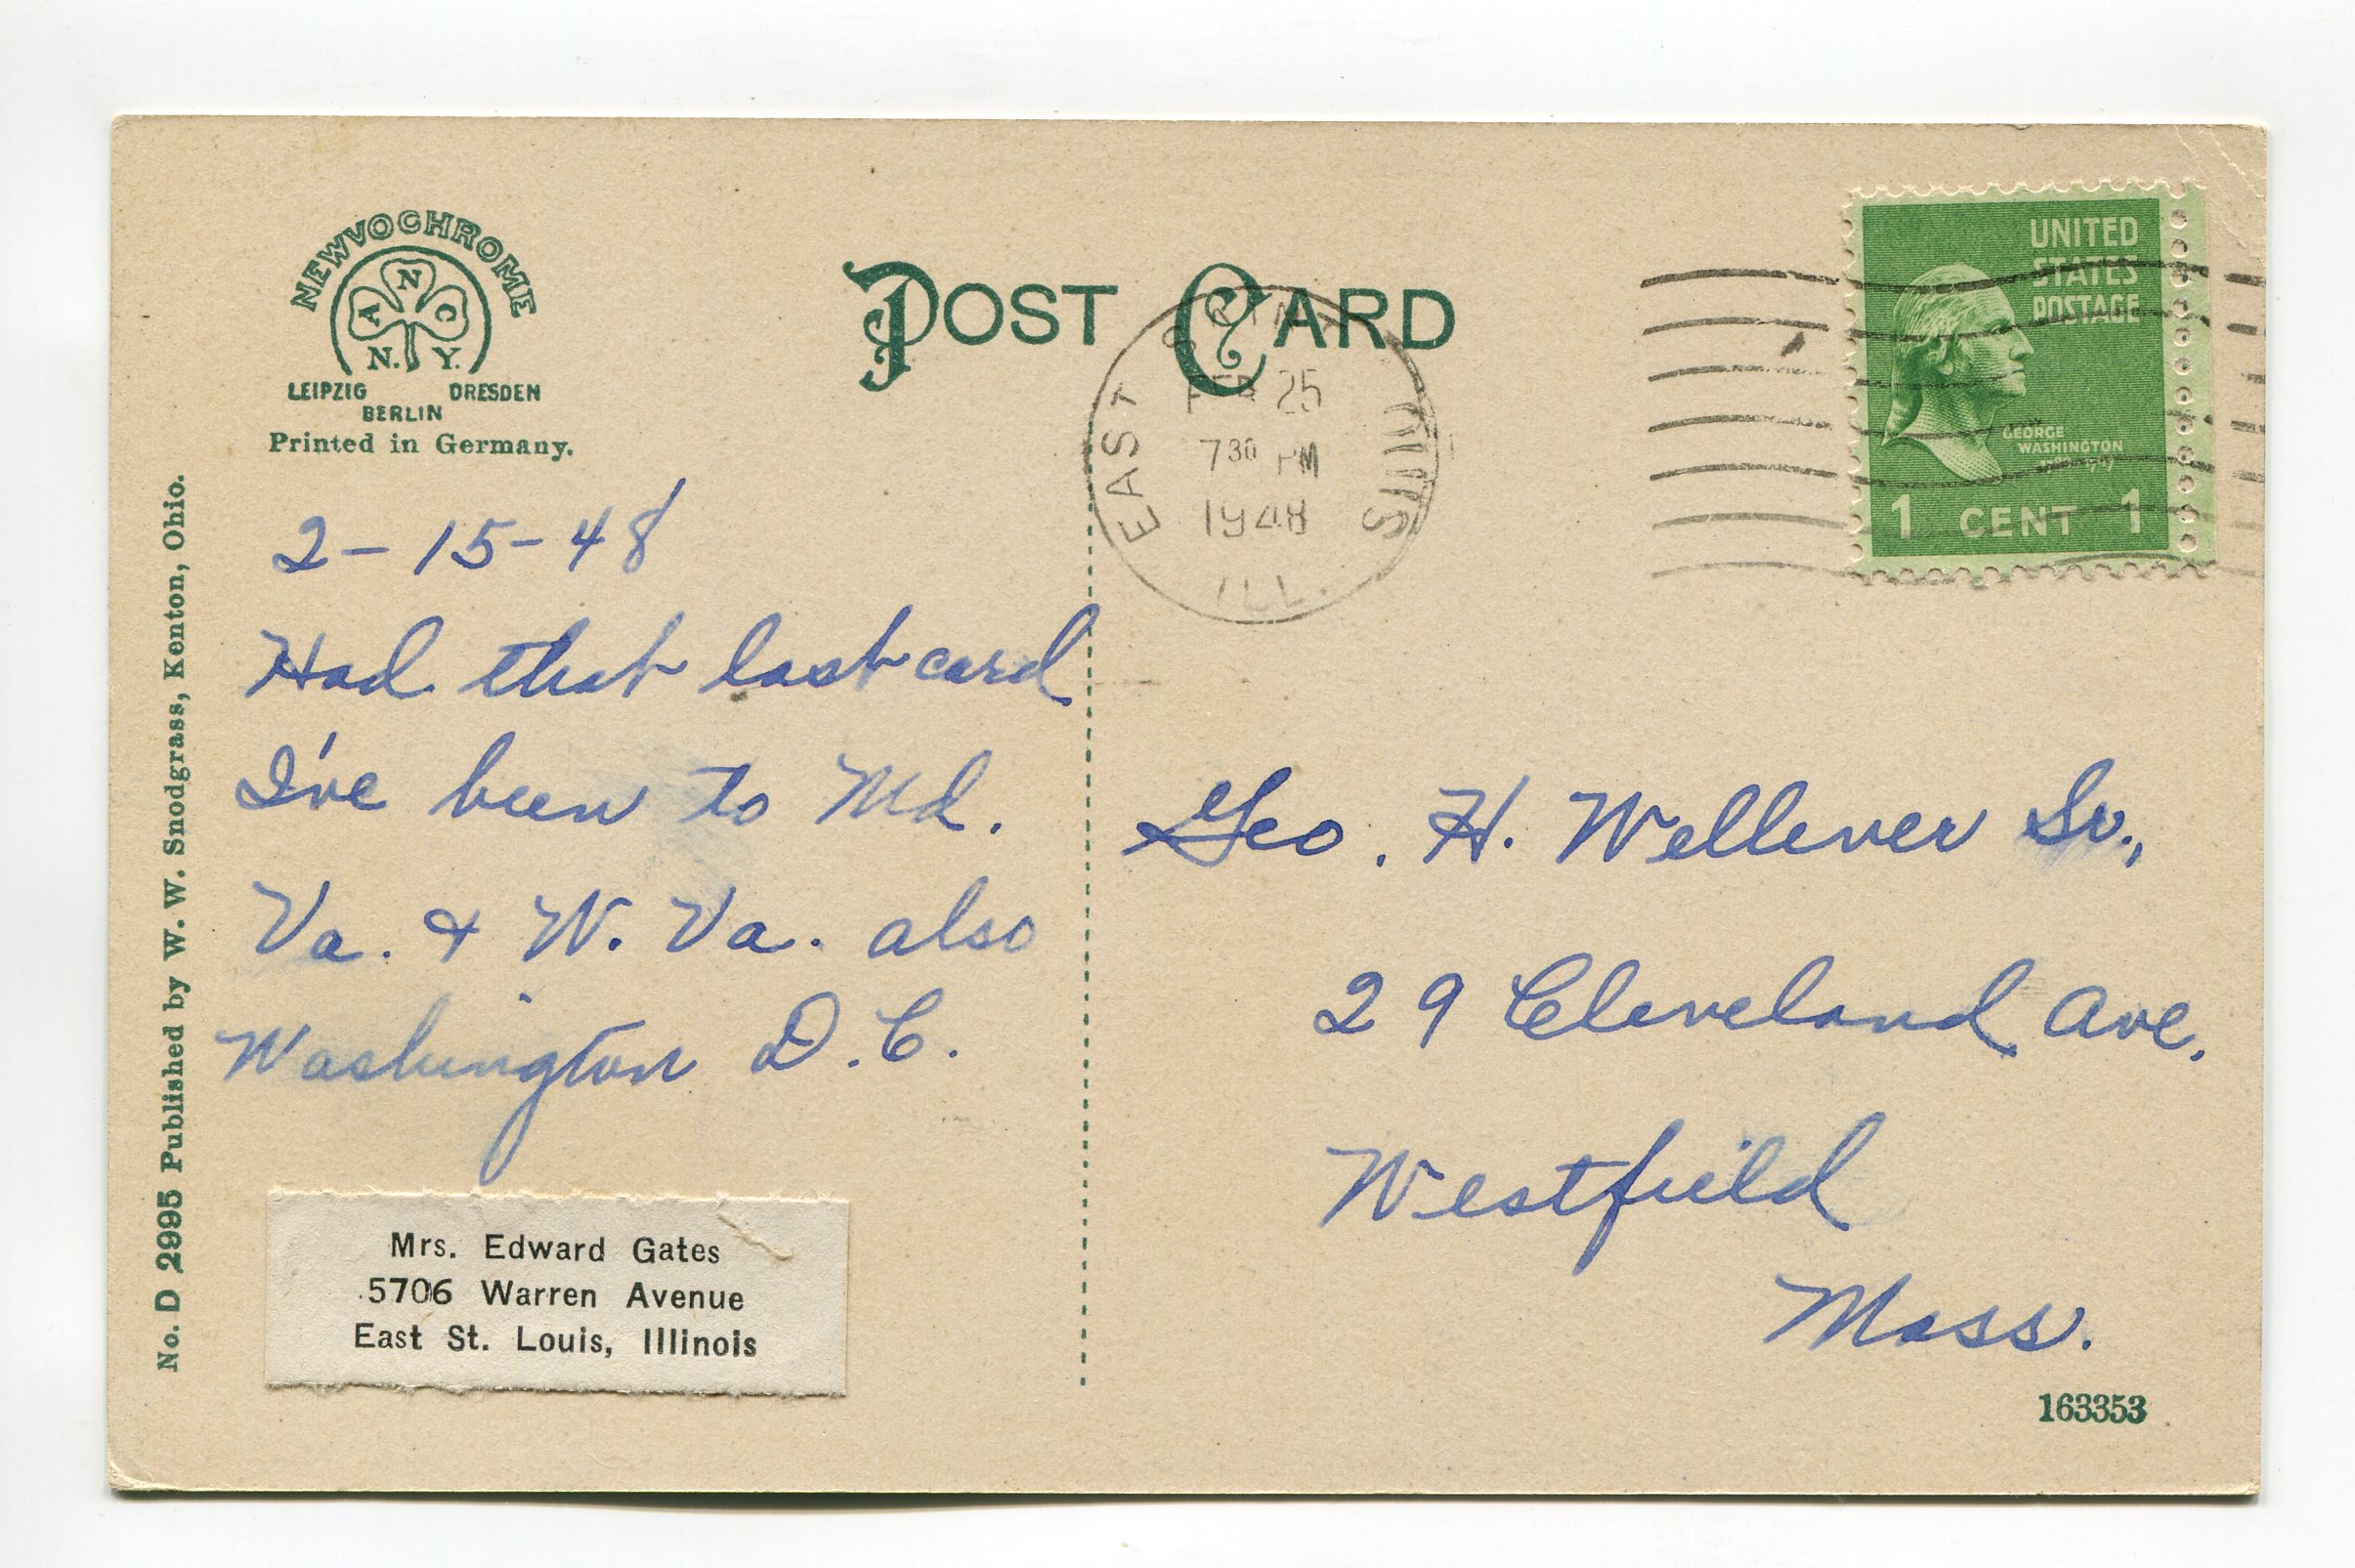 NEWVOCHROME
A N C
N. Y.
LEIPZIG DRESDEN
BERLIN
Printed in Germany.
POST CARD
EAST
FEB 25
7 30 PM
1948
ILL.
UNITED
STATES
POSTAGE
GEORGE
WASHINGTON
1 CENT 1
No. D 2995 Published by W. W. Snodgrass, Kenton, Ohio.
2-15-48
Had that last card
I've been to Md.
Va. & W. Va. also
Washington D.C.
Mrs. Edward Gates
5706 Warren Avenue
East St. Louis, Illinois
Geo. H. Wellever Sr.,
29 Cleveland Ave.
Westfield
Mass.
163353